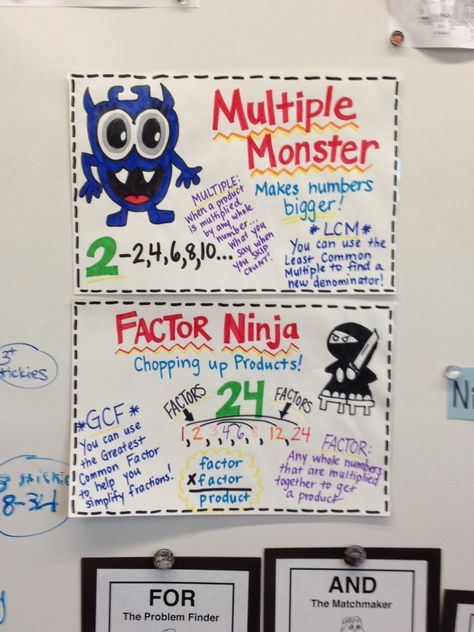 Multiple
Monster
Makes numbers
bigger!
MULTIPLE:
when a product
is multiplied
by any whole
number...
what you
say when
you skip
count!
*LCM*
You can use the
Least Common
Multiple to find a
new denominator!
2-2,4,6,8,10...
FACTOR Ninja
Chopping up Products!
*GCF*
You can use
the Greatest
Common Factor
to help you
simplify fractions!
FACTORS
24
FACTORS
1,2,3,4,6,8,12,24
factor
x factor
product
FACTOR:
Any whole numbers
that are multiplied
together to get
a product
3+
stickies
8-34
Ni
FOR
The Problem Finder
AND
The Matchmaker